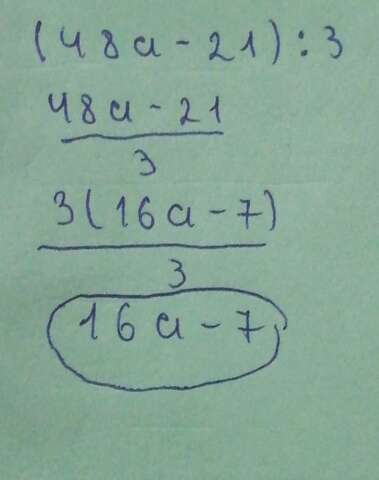 (48a-21):3
48a-21
3
3(16a-7)
3
16a-7